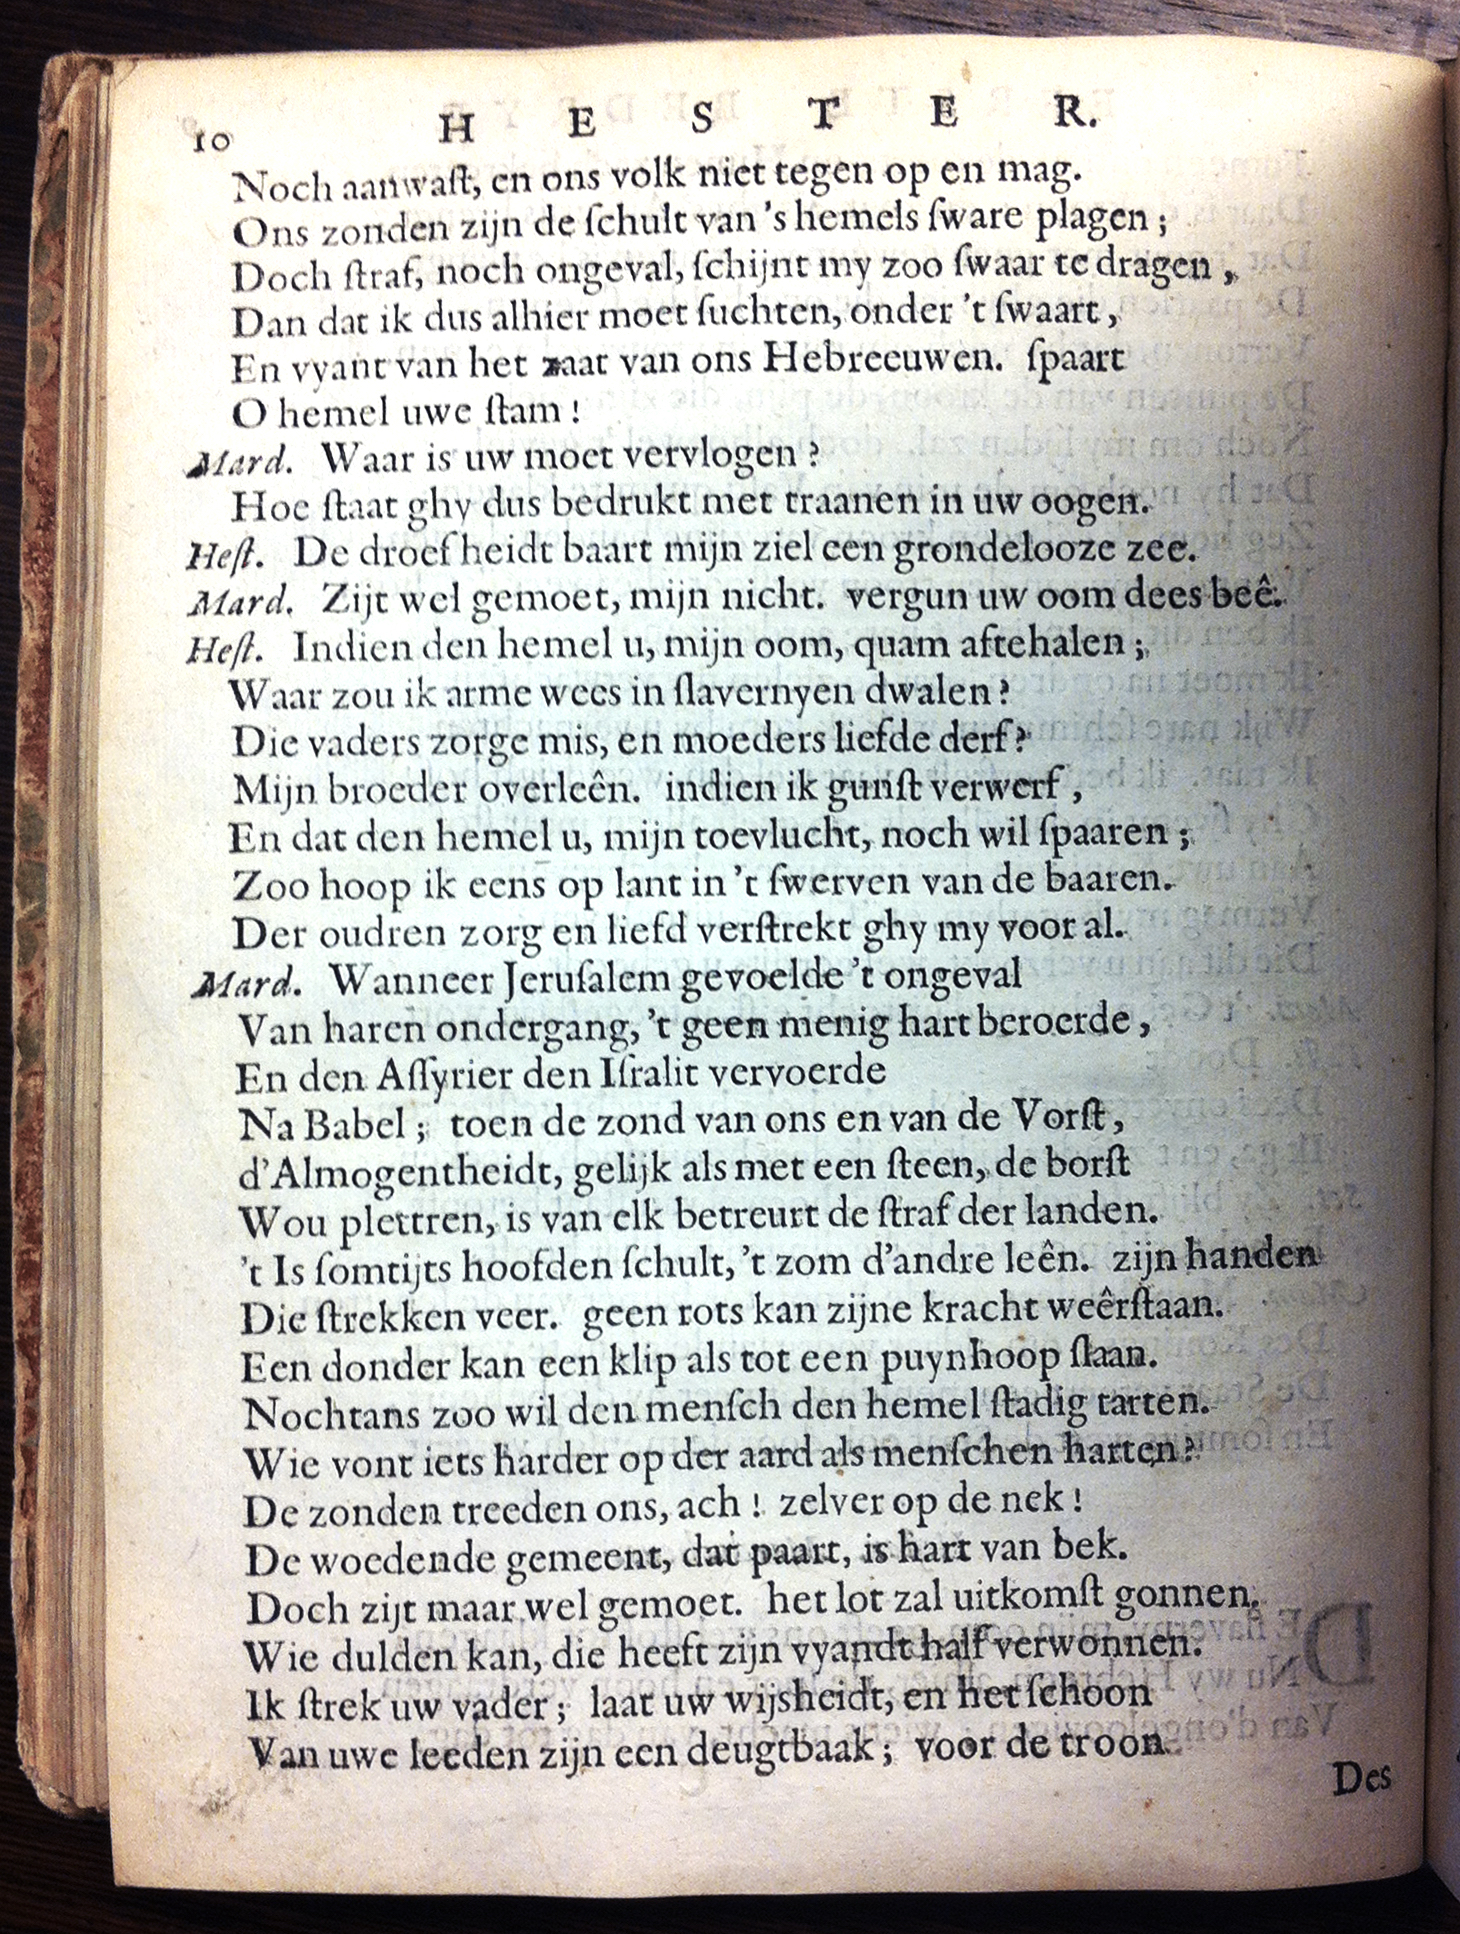 10 H E S T E R.
Noch aanwaſt, en ons volk niet tegen op en mag.
Ons zonden zijn de ſchult van 's hemels ſware plagen;
Doch ſtraf, noch ongeval, ſchijnt my zoo ſwaar te dragen,
Dan dat ik dus alhier moet ſuchten, onder 't ſwaart,
En vyant van het zaat van ons Hebreeuwen. ſpaart
O hemel uwe ſtam!
Mard. Waar is uw moet vervlogen?
Hoe ſtaat ghy dus bedrukt met traanen in uw oogen.
Heſt. De droefheidt baart mijn ziel een grondelooze zee.
Mard. Zijt wel gemoet, mijn nicht. vergun uw oom dees beê.
Heſt. Indien den hemel u, mijn oom, quam aftehalen;
Waar zou ik arme wees in ſlavernyen dwalen?
Die vaders zorge mis, en moeders liefde derf?
Mijn broeder overleên. indien ik gunſt verwerf,
En dat den hemel u, mijn toevlucht, noch wil ſpaaren;
Zoo hoop ik eens op lant in 't ſwerven van de baaren.
Der oudren zorg en liefd verſtrekt ghy my voor al.
Mard. Wanneer Jeruſalem gevoelde 't ongeval
Van haren ondergang, 't geen menig hart beroerde,
En den Aſſyrier den Iſralit vervoerde
Na Babel; toen de zond van ons en van de Vorſt,
d'Almogentheidt, gelijk als met een ſteen, de borſt
Wou plettren, is van elk betreurt de ſtraf der landen.
't Is ſomtijts hoofden ſchult, 't zom d'andre leên. zijn handen
Die ſtrekken veer. geen rots kan zijne kracht weêrſtaan.
Een donder kan een klip als tot een puynhoop ſlaan.
Nochtans zoo wil den menſch den hemel ſtadig tarten.
Wie vont iets harder op der aard als menſchen harten?
De zonden treeden ons, ach! zelver op de nek!
De woedende gemeent, dat paart, is hart van bek.
Doch zijt maar wel gemoet. het lot zal uitkomſt gonnen.
Wie dulden kan, die heeft zijn vyandt half verwonnen.
Ik ſtrek uw vader; laat uw wijsheidt, en het ſchoon
Van uwe leeden zijn een deugtbaak; voor de troon
Des